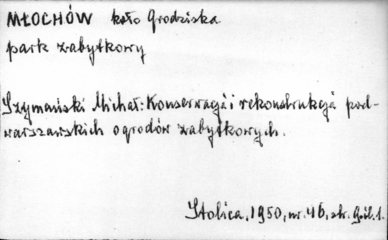 MŁOCHÓW koło Grodziska
park zabytkowy
Szymański Michał: Konserwacja i rekonstrukcja pod-
warszawskich ogrodów zabytkowych.
Stolica, 1950, nr. 46, str.